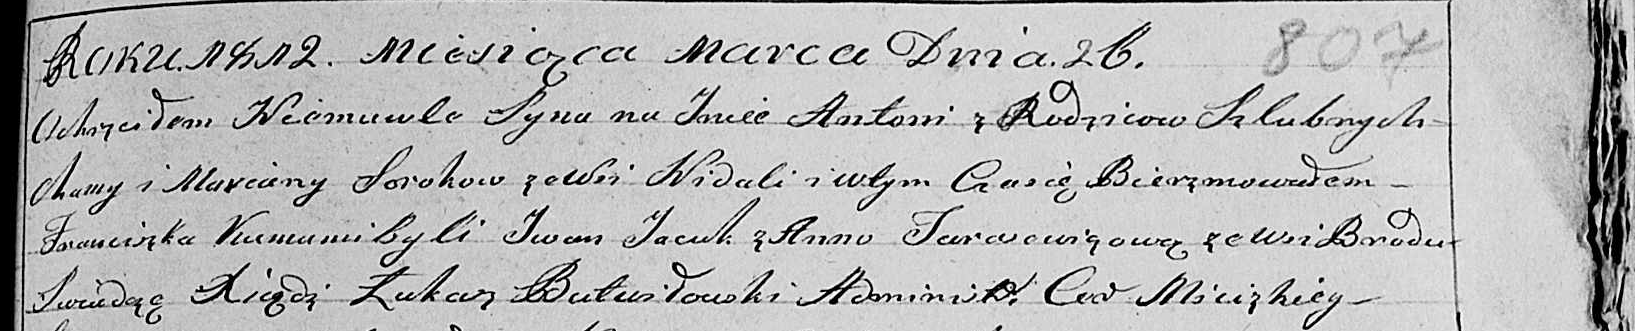 Roku 1812. Miesiąca Marca Dnia. 26. 807
Ochrzciłem Niemowle Syna na Imie Antoni z Rodzicow Szlubnych
Chomy i Maryany Sorokow ze Wsi Nidali i w tym Czasie Bierzmowałem
Franciszka Kumami byli Iwan Jacuk z Anno Tarasewiczową ze Wsi Brodu
Swiadczę Xiądz Łukasz Butwiłowski Administr. Cer Mscizkiey